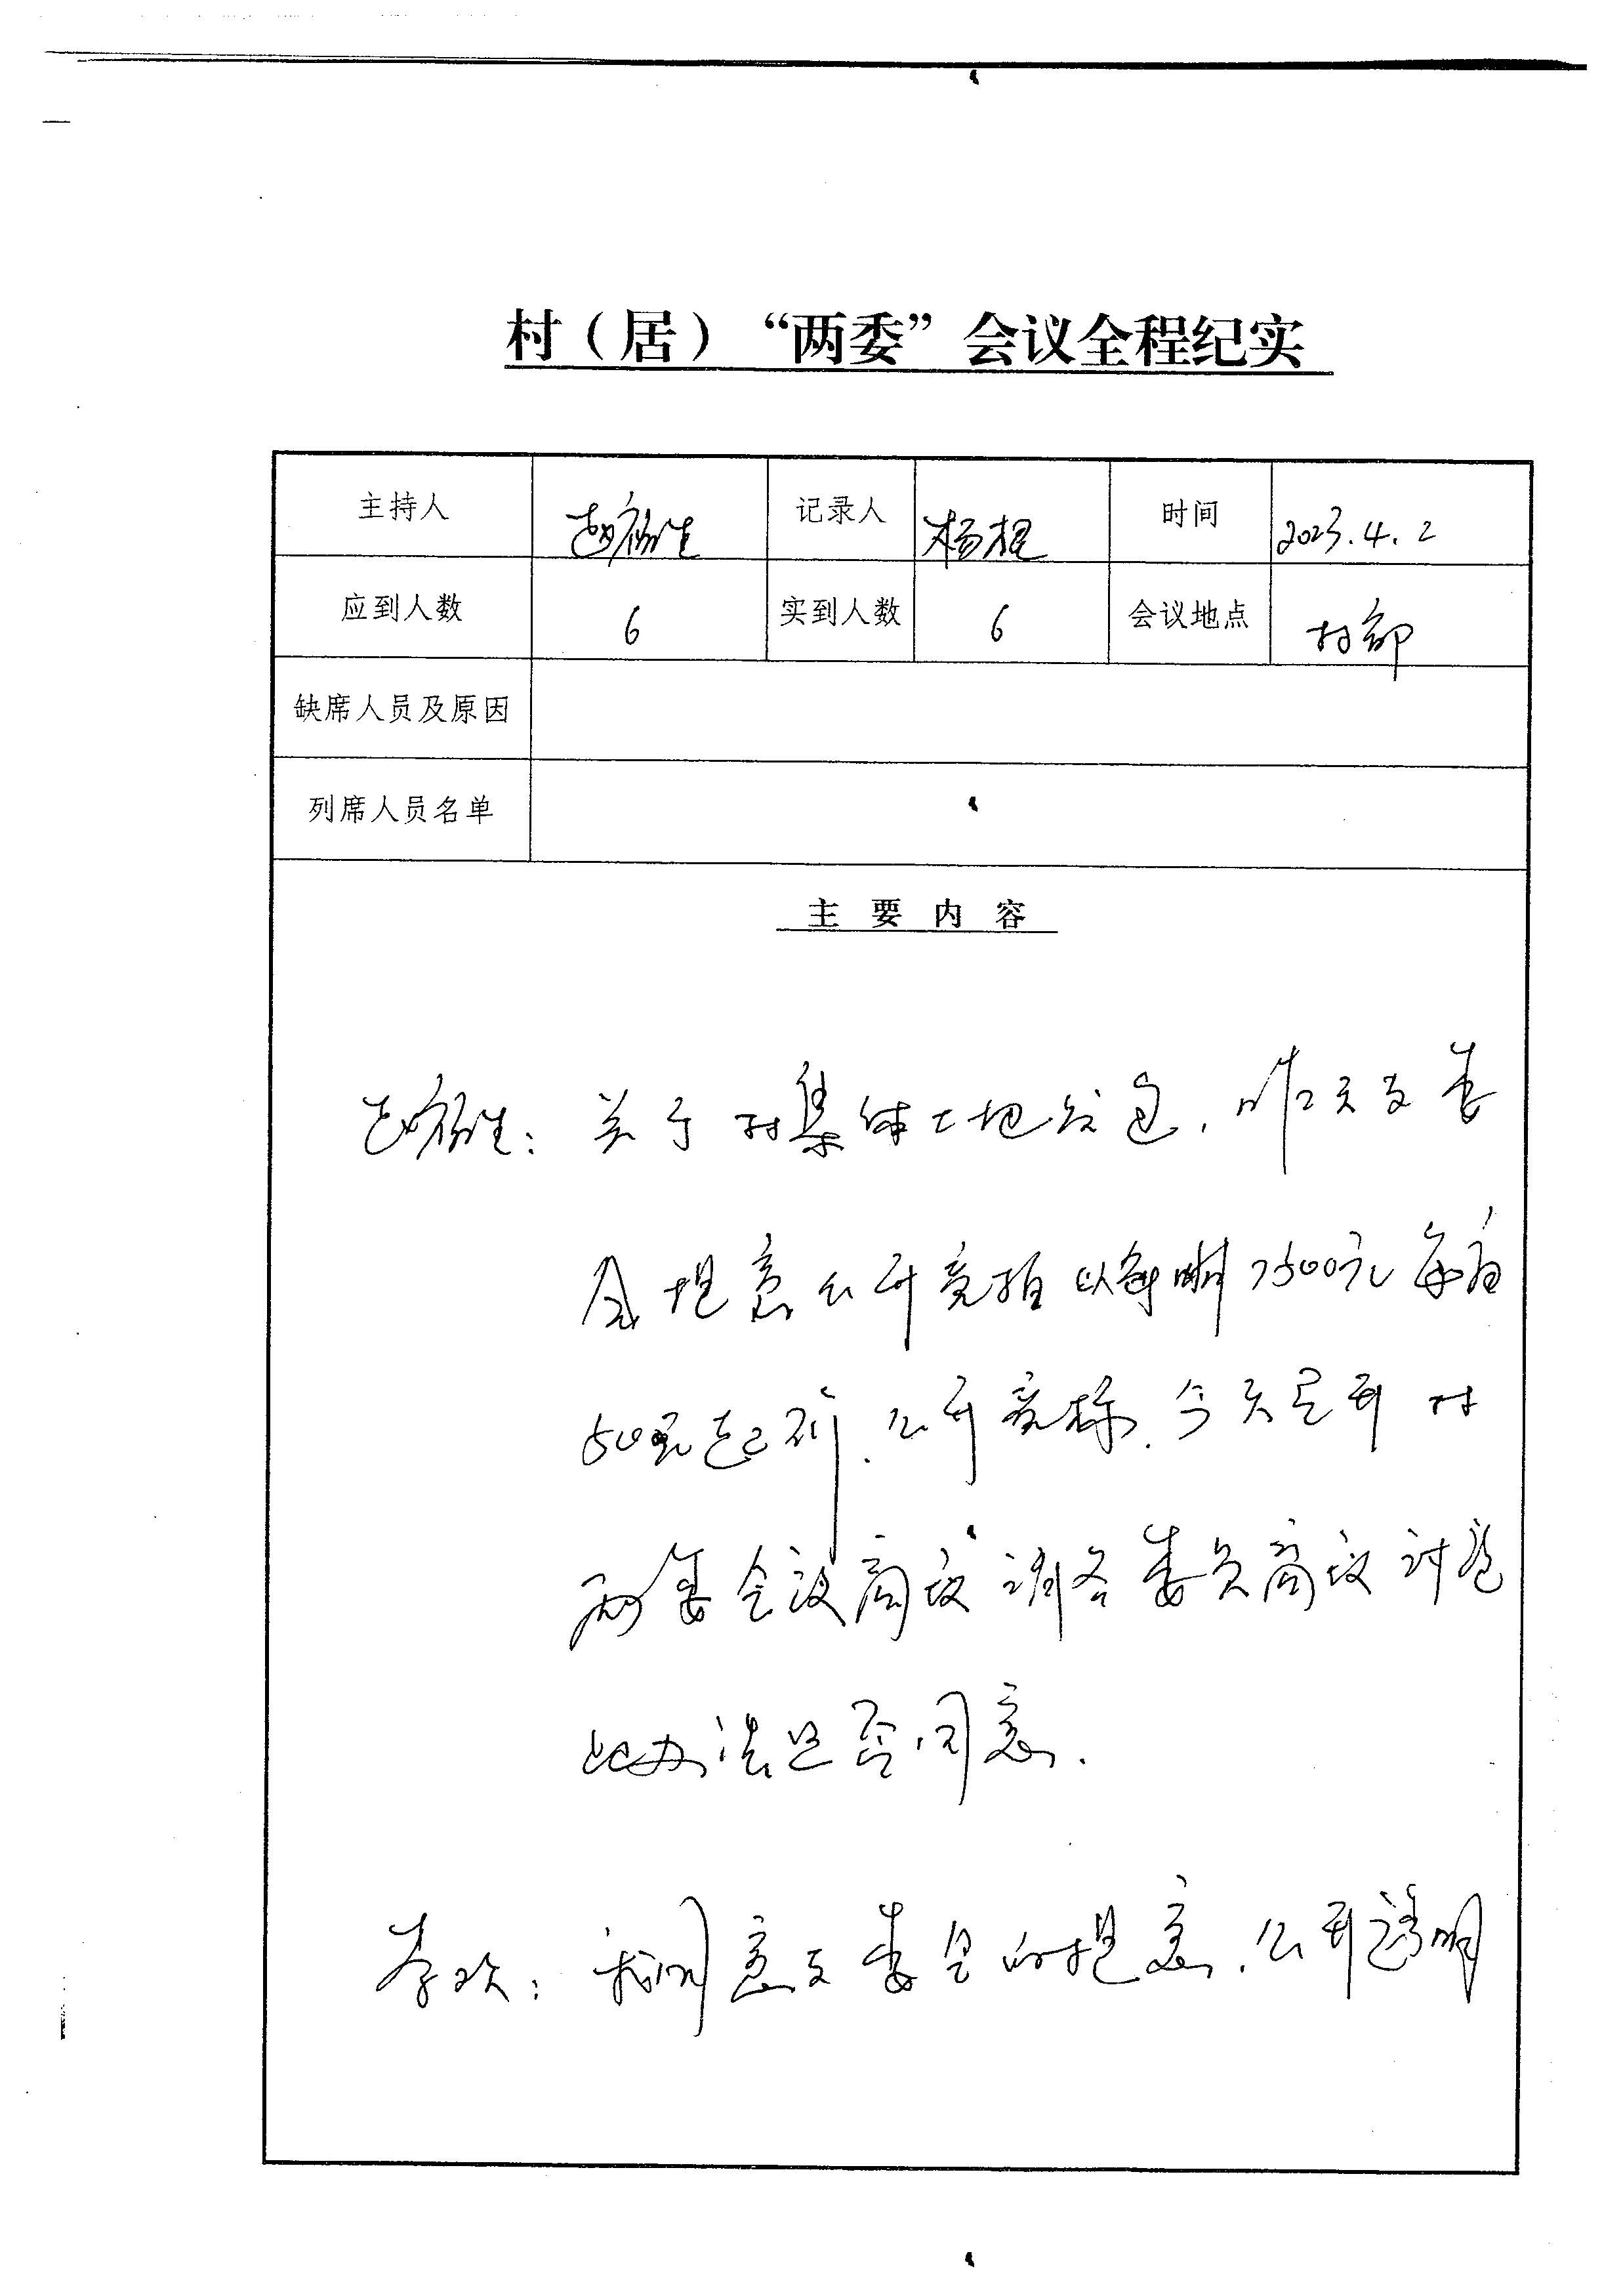 村（居）“两委”会议全程纪实
主持人 赵福生 记录人 杨程 时间 2023.4.2
应到人数 6 实到人数 6 会议地点 村部
缺席人员及原因
列席人员名单
主要内容
赵福生：关于村集体土地发包，昨天支委
会提意公开竞拍以每晌7500元每亩
500元起价，公开竞标，今天是开村
两委会议商议请各委员商议讨论
此办法是否同意．
李欢：我同意支委会的提意，公开透明